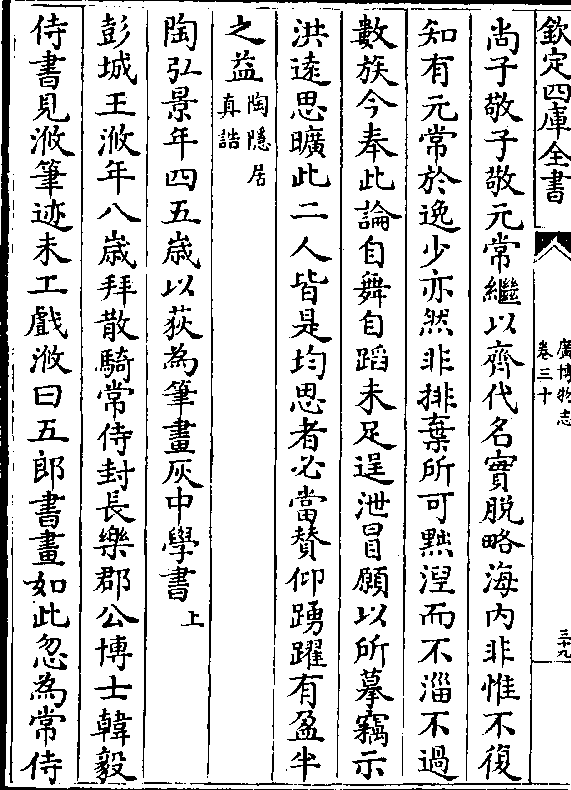 欽定四庫全書
廣博物志
卷三十
三十九
尚子敬子敬元常繼以齊代名實脱略海内非惟不復
知有元常於逸少亦然非排棄所可黜涅而不淄不過
數族今奉此論自舞自蹈未足逞泄冒願以所摹竊示
洪遠思曠此二人皆是均思者必當贊仰踴躍有盈半
之益陶隱居
真誥
陶弘景年四五歳以荻為筆畫灰中學書上
彭城王浟年八歳拜散騎常侍封長樂郡公博士韓毅
侍書見浟筆迹未工戲浟曰五郎書畫如此忽為常侍